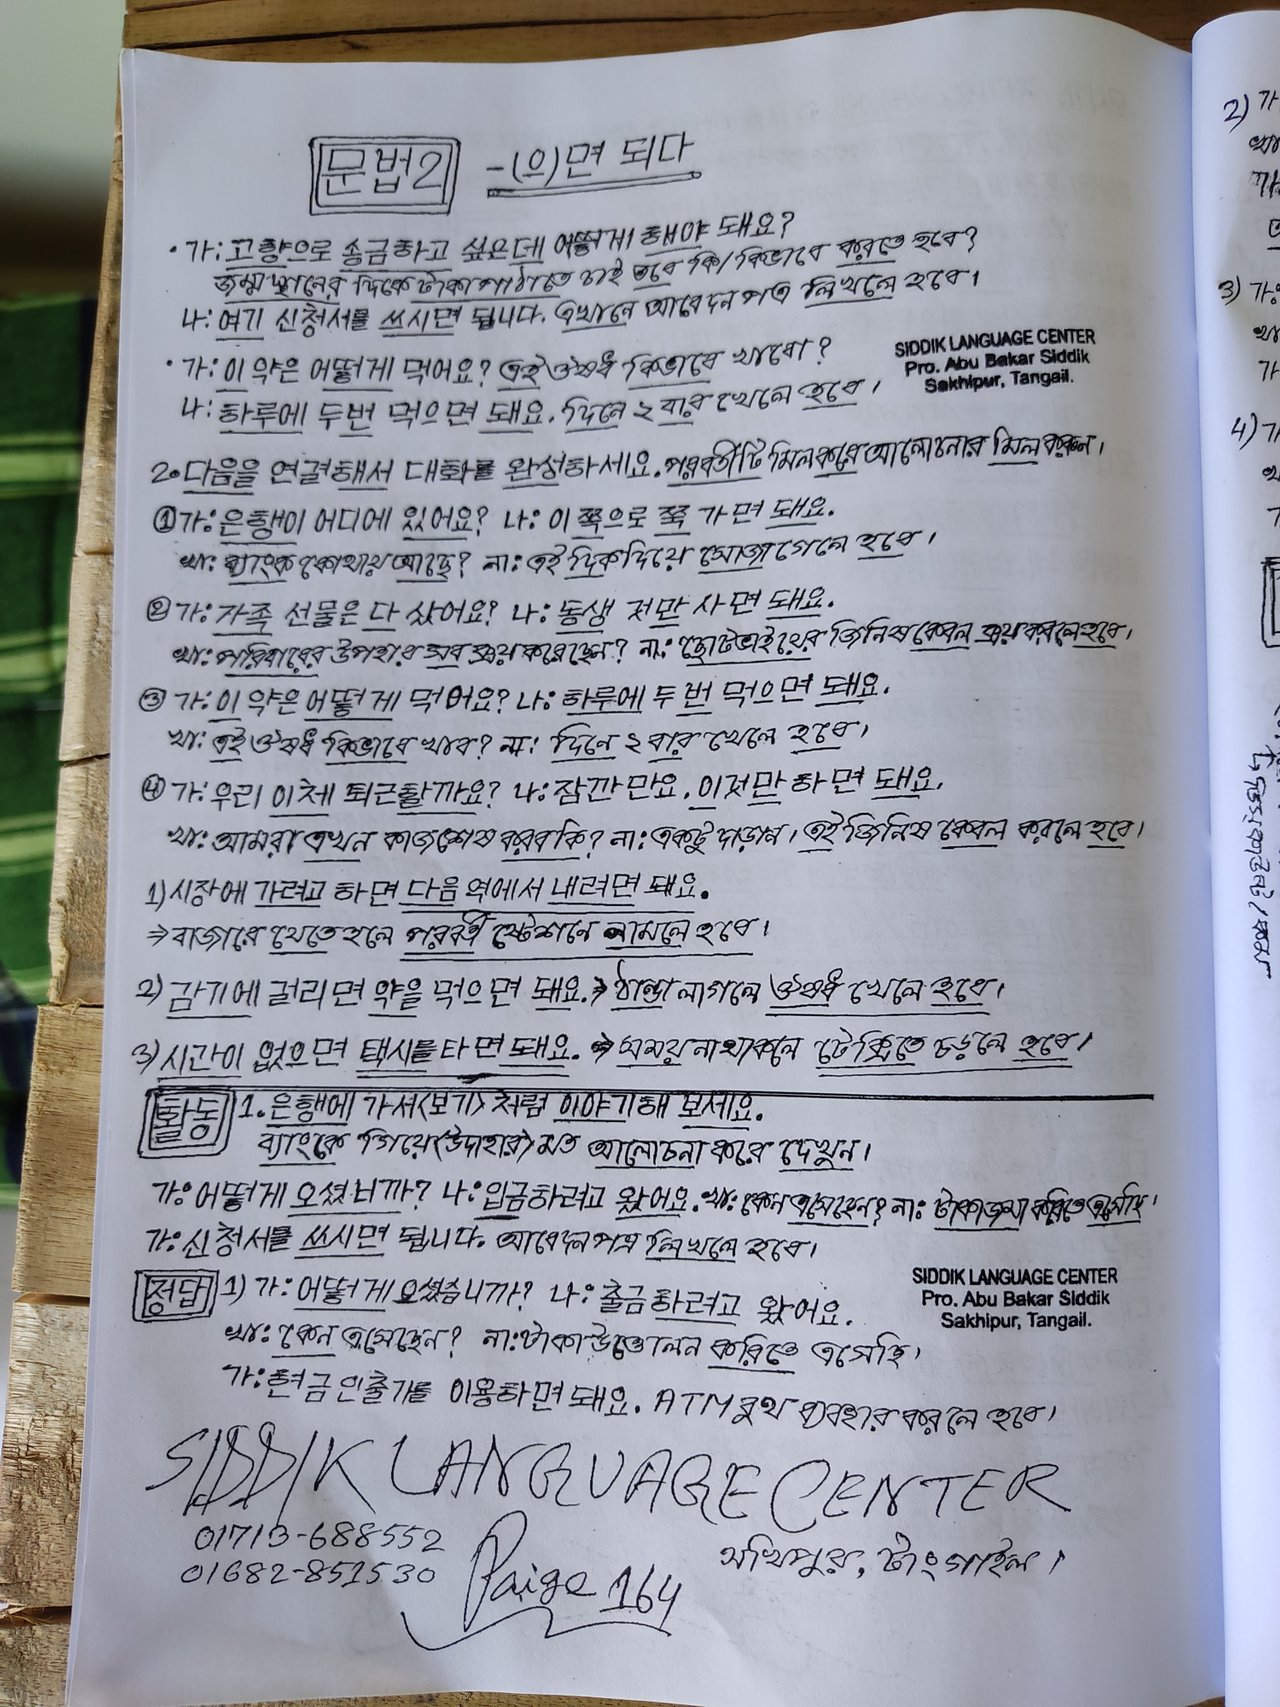 문법2 -(으)면 되다
• 가: 고향으로 송금하고 싶은데 어떻게 해야 돼요?
জন্মস্থানের দিকে টাকা পাঠাতে চাই তবে কি/কিভাবে করতে হবে?
나: 여기 신청서를 쓰시면 됩니다. এখানে আবেদন পত্র লিখলে হবে।
• 가: 이 약은 어떻게 먹어요? এই ঔষধ কিভাবে খাবো?
나: 하루에 두번 먹으면 돼요. দিনে ২ বার খেলে হবে।
SIDDIK LANGUAGE CENTER
Pro. Abu Bakar Siddik
Sakhipur, Tangail.
2. 다음을 연결해서 대화를 완성하세요. পরবর্তীটি মিল করে আলোচনার মিল করুন।
① 가: 은행이 어디에 있어요? 나: 이 쪽으로 쭉 가면 돼요.
খা: ব্যাংক কোথায় আছে? না: এই দিক দিয়ে সোজা গেলে হবে।
② 가: 가족 선물은 다 샀어요? 나: 동생 저만 사면 돼요.
খা: পরিবারের উপহার সব ক্রয় করেছেন? না: ছোটভাইয়ের জিনিষ কেবল ক্রয় করলে হবে।
③ 가: 이 약은 어떻게 먹어요? 나: 하루에 두 번 먹으면 돼요.
খা: এই ঔষধ কিভাবে খাব? না: দিনে ২ বার খেলে হবে।
④ 가: 우리 이제 퇴근할까요? 나: 잠깐만요. 이것만 하면 돼요.
খা: আমরা এখন কাজ শেষ করব কি? না: একটু দাড়ান। এই জিনিষ কেবল করলে হবে।
1) 시장에 가려고 하면 다음 역에서 내려면 돼요.
⇒ বাজারে যেতে হলে পরবর্তী ষ্টেশনে নামলে হবে।
2) 감기에 걸리면 약을 먹으면 돼요. ⇒ ঠান্ডা লাগলে ঔষধ খেলে হবে।
3) 시간이 없으면 택시를 타면 돼요. ⇒ সময় না থাকলে টেক্সিতে চড়লে হবে।
활동 1. 은행에 가서 <보기> 처럼 이야기해 보세요.
ব্যাংকে গিয়ে <উদাহার> মত আলোচনা করে দেখুন।
가: 어떻게 오셨니까? 나: 입금하려고 왔어요. খা: কেন এসেছেন? না: টাকা জমা করিতে এসেছি।
가: 신청서를 쓰시면 됩니다. আবেদন পত্র লিখলে হবে।
정답 1) 가: 어떻게 오셨습니까? 나: 출금하려고 왔어요.
খা: কেন এসেছেন? না: টাকা উত্তোলন করিতে এসেছি।
가: 현금인출기를 이용하면 돼요. ATM বুথ ব্যবহার করলে হবে।
SIDDIK LANGUAGE CENTER
Pro. Abu Bakar Siddik
Sakhipur, Tangail.
SIDDIK LANGUAGE CENTER
01713-688552
01682-851530
Paige 164
সখিপুর, টাংগাইল।